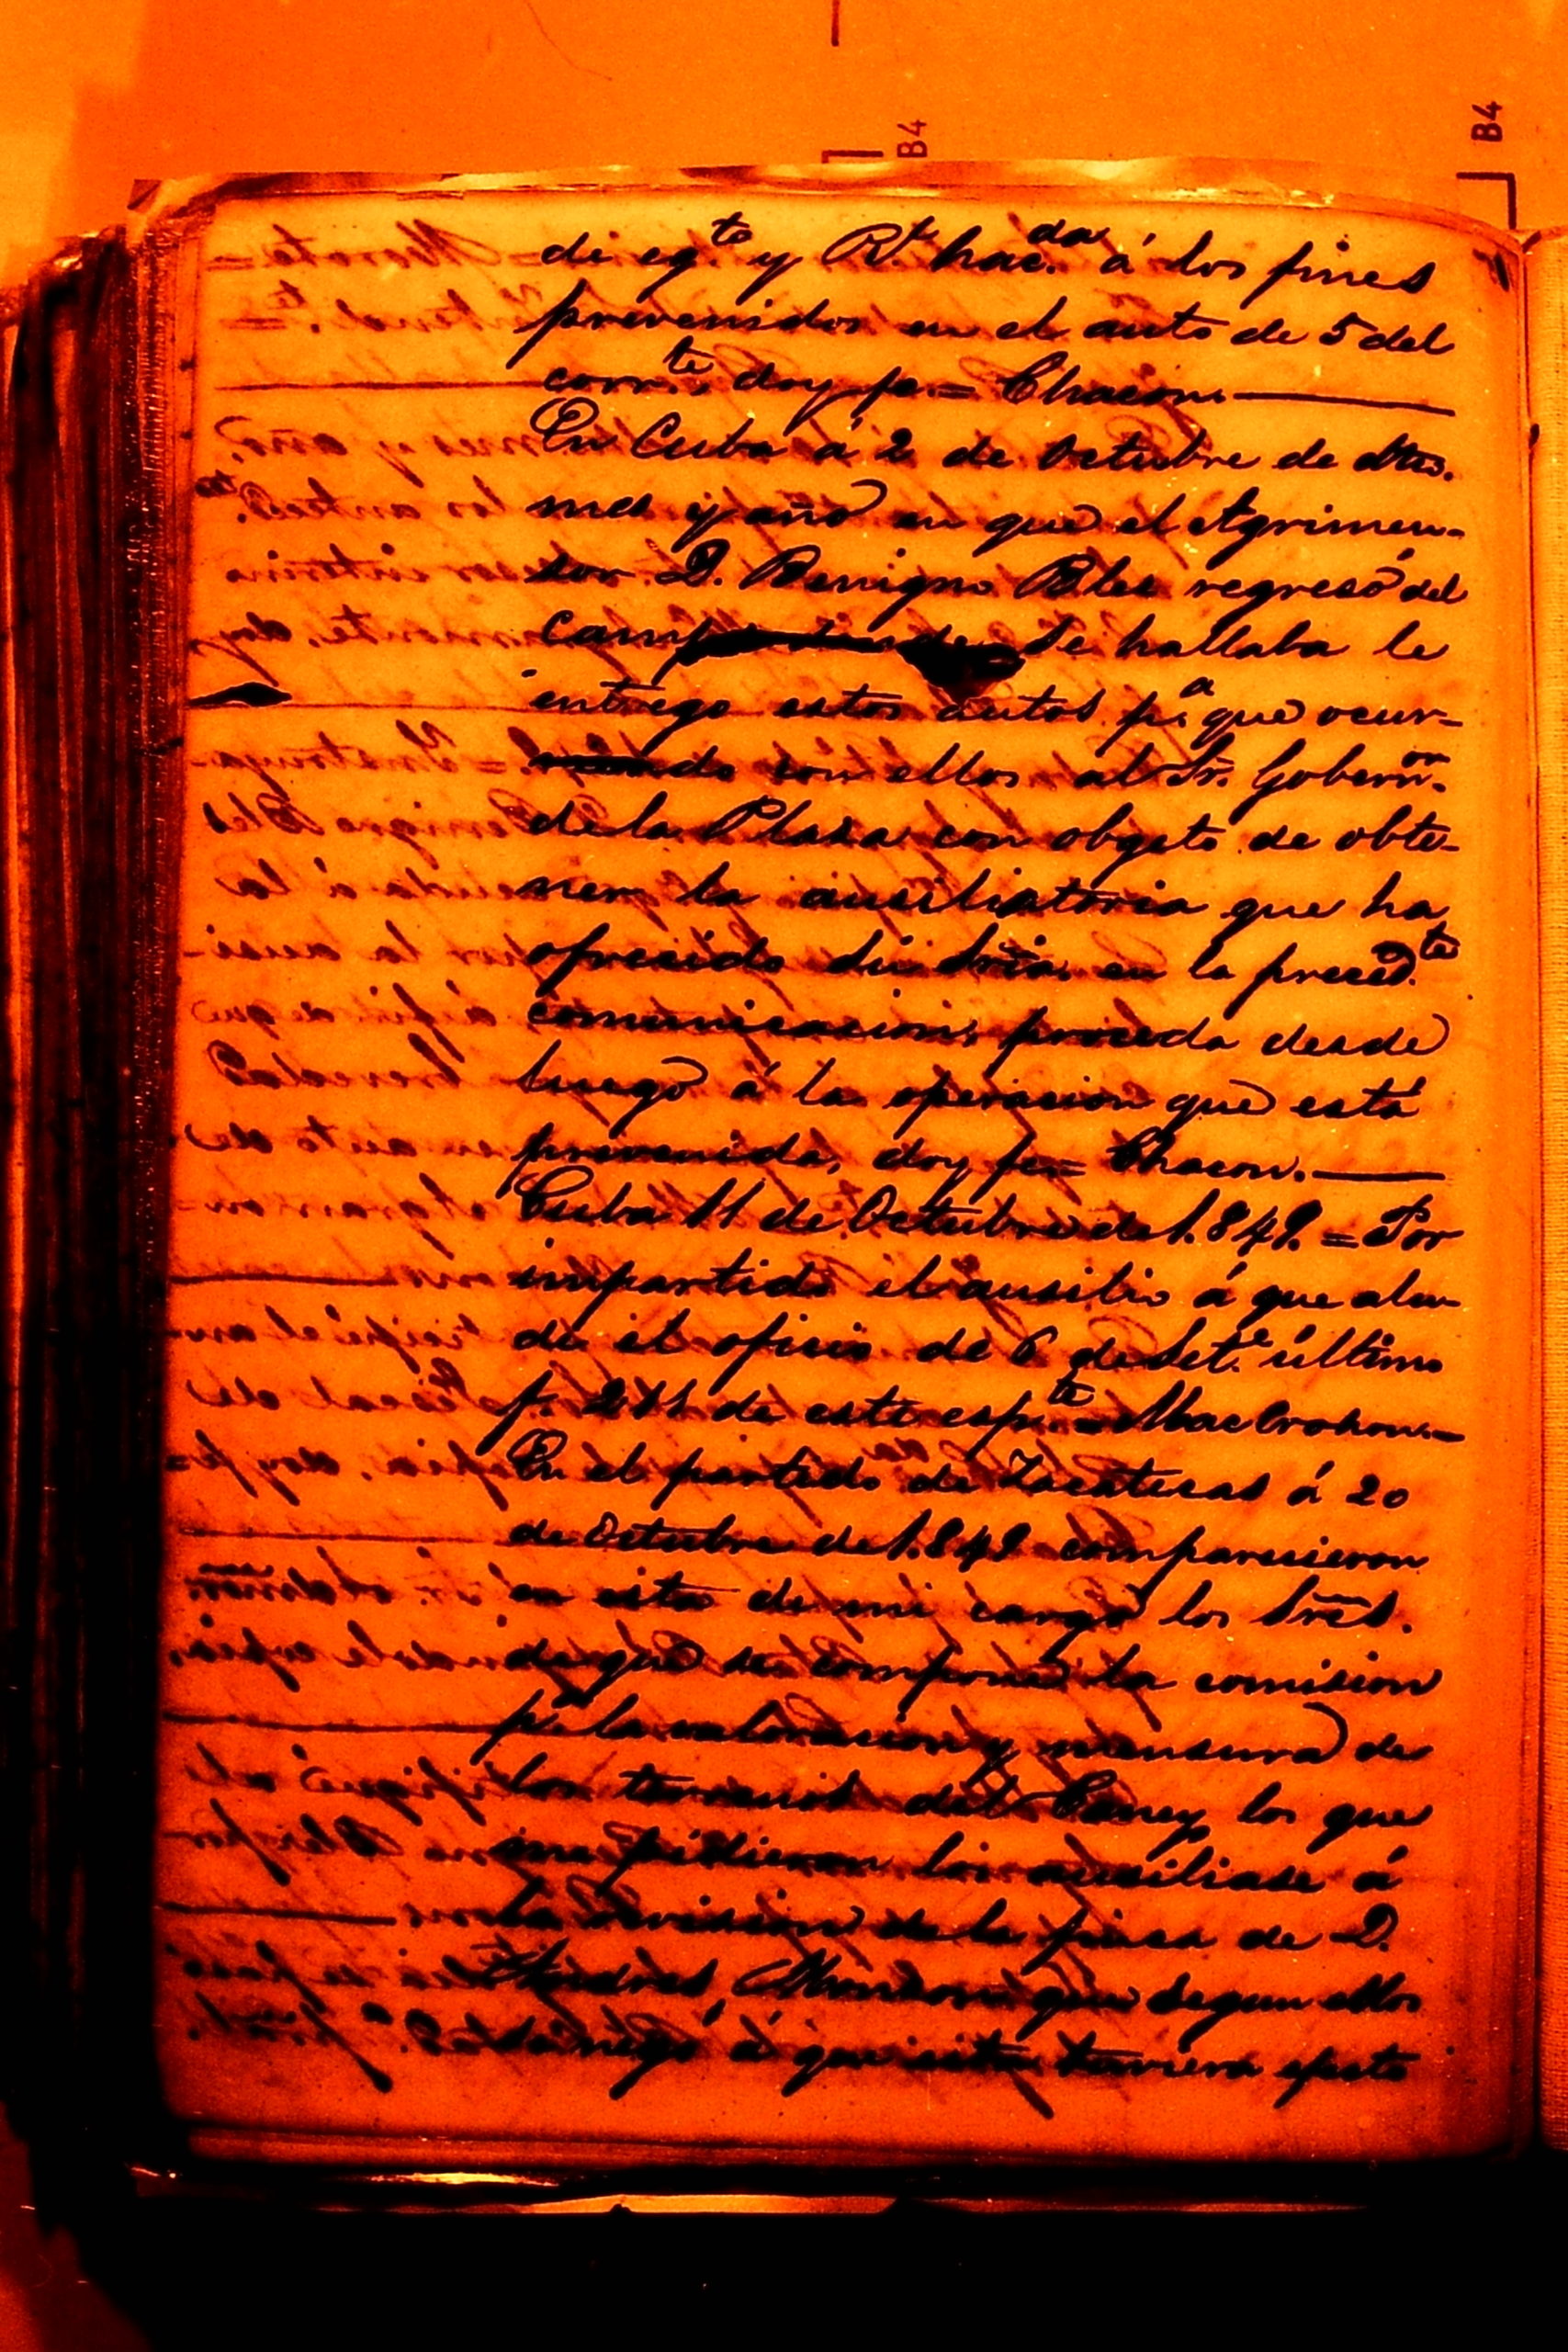 B4
B4
de eg.te y R.l hac.da á los fines
prevenidos en el auto de 5 del
corr.te, doy fe = Chacon.
En Cuba á 2 de Octubre de dhos.
mes y año en que el Agrimen-
sor D. Benigno Bles regresó del
Campo donde se hallaba le
entrego estos autos p.a que ocur-
riendo con ellos al Sr. Gobern.or
de la Plaza con objeto de obte-
ner la ausiliatoria que ha
ofrecido Su Sría en la preced.te
comunicacion, proceda desde
luego á la operacion que está
prevenida, doy fe = Chacon.
Cuba 11 de Octubre de 1.849. = Por
impartido el ausilio á que alu-
de el oficio de 6 de Set.e último
f. 211 de este esp.te = MacCrohon =
En el partido de Zacatecas á 20
de Octubre de 1.849 comparecieron
en esta de mi cargo los Sres.
de que se compone la comision
p.a la valoracion y mensura de
los terrenos del Caney los que
me pidieron los ausiliase á
la division de la finca de D.
Andres Monzon que segun ellos
se negó á que esta tuviera efecto